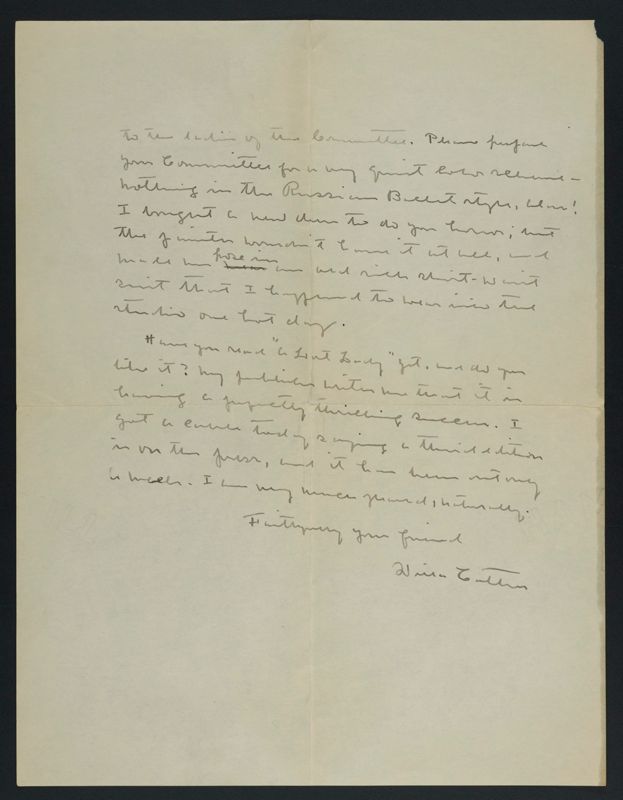 to the ladies of the Committee. Please prepare
your Committee for a very quiet color scheme –
nothing in the Russian Ballet style, alas!
I bought a new dress to do you honor; but
the painter wouldn't have it at all, and
made me pose in an old silk shirt-waist
suit that I happened to wear into the
studio one hot day.
Have you read "A Lost Lady" yet, and do you
like it? My publisher writes me that it is
having a perfectly thrilling success. I
got a cable today saying a third edition
is on the press, and it has been out only
a week. I am very much pleased, naturally.
Faithfully your friend
Willa Cather